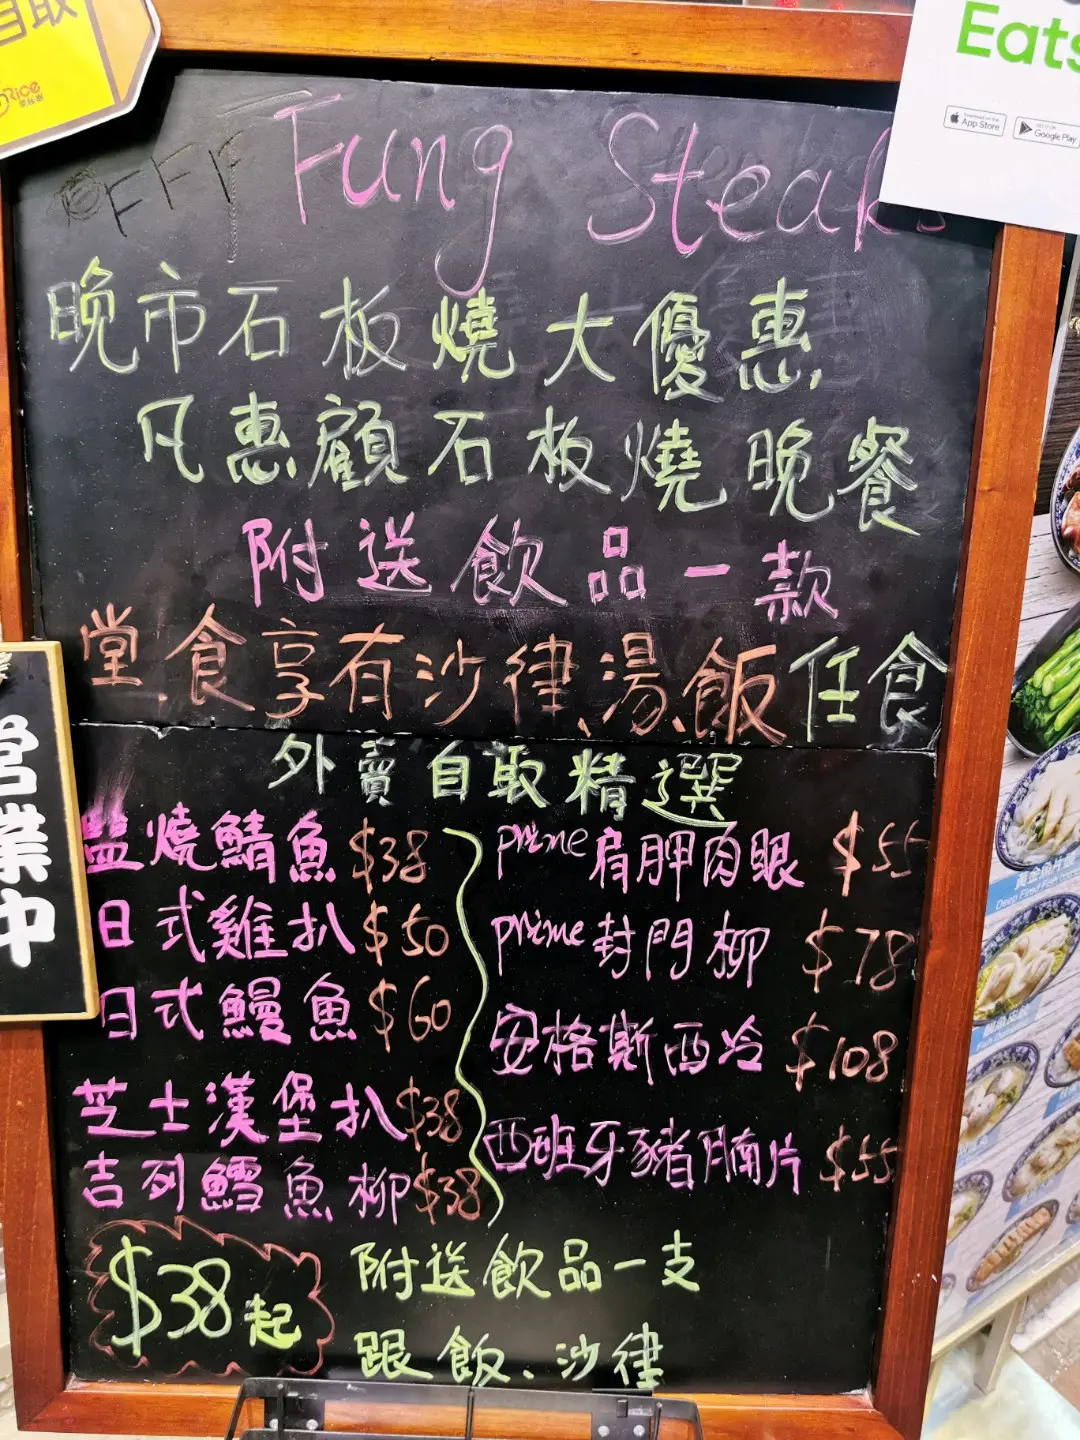 自取
Rice
Eats
Download on the
App Store
GET IT ON
Google Play
OFFF Fung Steak
晚市石板燒大優惠,
凡惠顧石板燒晚餐
附送飲品一款
堂食享有沙律、湯、飯任食
外賣自取精選
營業中
盐燒鯖魚 $38
日式雞扒 $50
日式鰻魚 $60
芝士漢堡扒 $38
吉列鱈魚柳 $38
prime 肩胛肉眼 $55
prime 封門柳 $78
安格斯西冷 $108
西班牙豬腩片 $55
$38起
附送飲品一支
跟飯、沙律